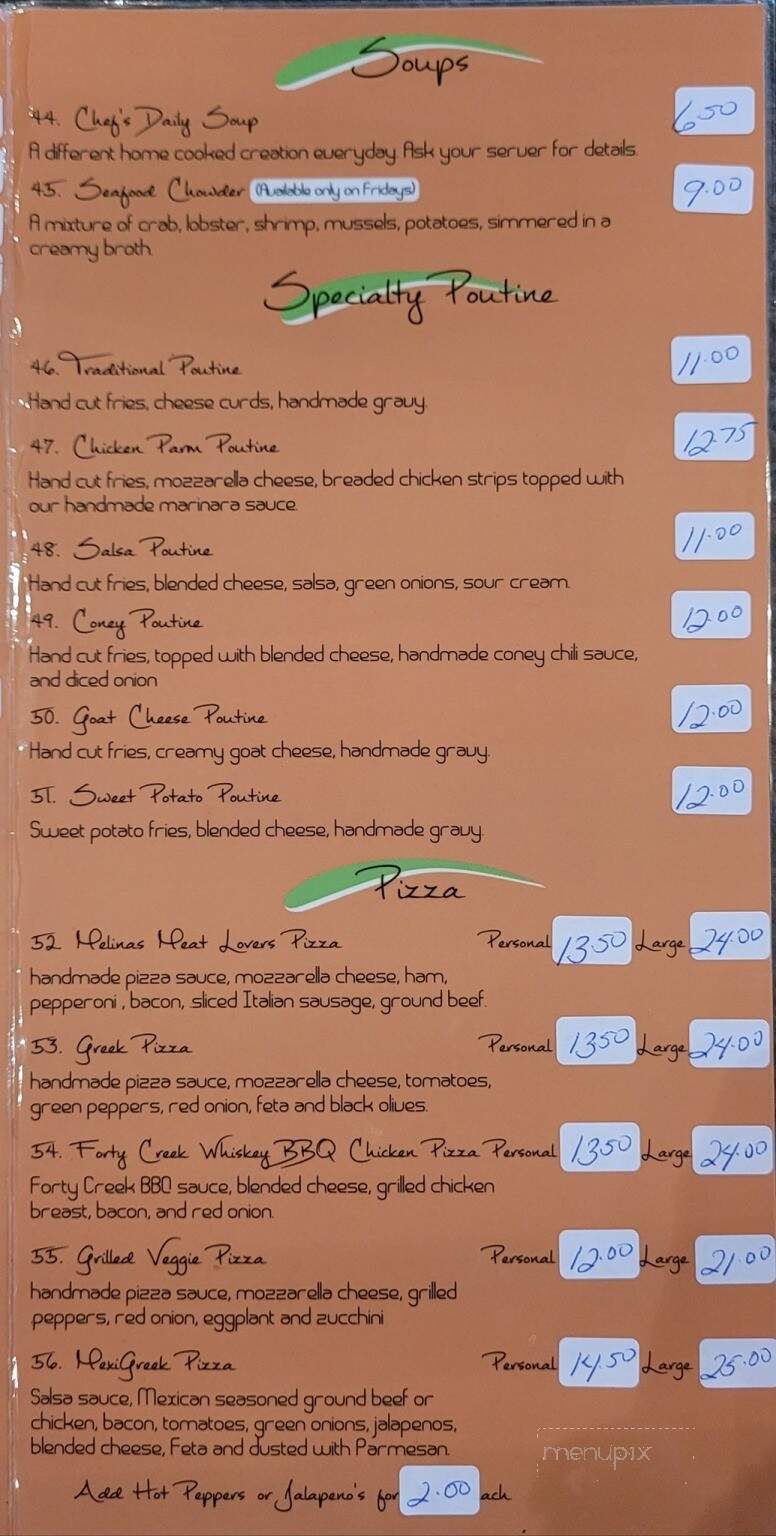 Soups
44. Chef's Daily Soup 6.50
A different home cooked creation everyday. Ask your server for details.
45. Seafood Chowder (Available only on Fridays) 9.00
A mixture of crab, lobster, shrimp, mussels, potatoes, simmered in a
creamy broth.
Specialty Poutine
46. Traditional Poutine 11.00
Hand cut fries, cheese curds, handmade gravy.
47. Chicken Parm Poutine 12.75
Hand cut fries, mozzarella cheese, breaded chicken strips topped with
our handmade marinara sauce.
48. Salsa Poutine 11.00
Hand cut fries, blended cheese, salsa, green onions, sour cream.
49. Coney Poutine 12.00
Hand cut fries, topped with blended cheese, handmade coney chili sauce,
and diced onion
50. Goat Cheese Poutine 12.00
Hand cut fries, creamy goat cheese, handmade gravy.
51. Sweet Potato Poutine 12.00
Sweet potato fries, blended cheese, handmade gravy.
Pizza
52 Melinas Meat Lovers Pizza Personal 13.50 Large 24.00
handmade pizza sauce, mozzarella cheese, ham,
pepperoni , bacon, sliced Italian sausage, ground beef.
53. Greek Pizza Personal 13.50 Large 24.00
handmade pizza sauce, mozzarella cheese, tomatoes,
green peppers, red onion, feta and black olives.
54. Forty Creek Whiskey BBQ Chicken Pizza Personal 13.50 Large 24.00
Forty Creek BBQ sauce, blended cheese, grilled chicken
breast, bacon, and red onion.
55. Grilled Veggie Pizza Personal 12.00 Large 21.00
handmade pizza sauce, mozzarella cheese, grilled
peppers, red onion, eggplant and zucchini
56. MexiGreek Pizza Personal 14.50 Large 25.00
Salsa sauce, Mexican seasoned ground beef or
chicken, bacon, tomatoes, green onions, jalapenos,
blended cheese, Feta and dusted with Parmesan.
menupix
Add Hot Peppers or Jalapeno's for 2.00 each